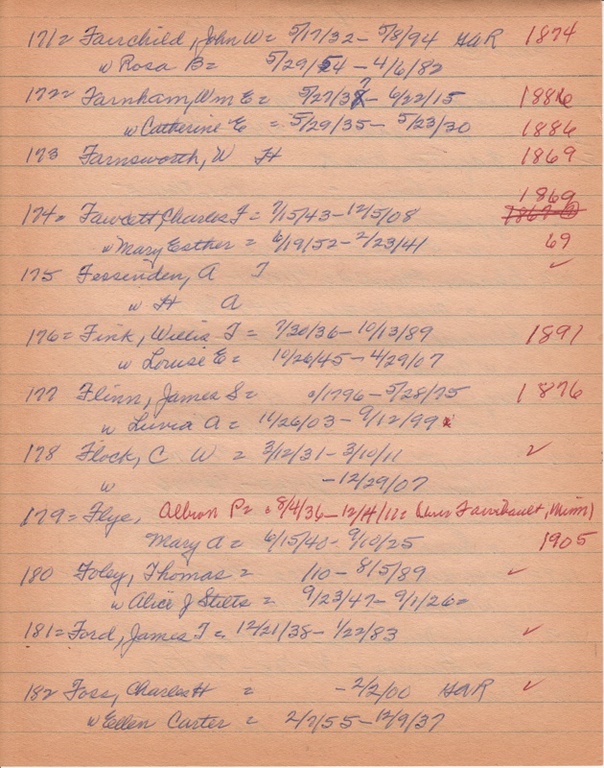 171= Fairchild, John W= 5/17/32 - 5/8/94 GAR 1874
w Rosa B= 5/29/54 - 4/6/82
172= Farnham, Wm E= 5/27/38? - 6/22/15 1886
w Catherine E = 5/29/35 - 5/23/30 1886
173 Farnsworth, W H 1869
1869
174= Fawcett, Charles F = 7/15/43 - 12/5/08
w Mary Esther = 6/19/52 - 2/23/41 69
175 Fessenden, A T ✓
w H A
176= Fink, Willis T = 7/30/36 - 10/13/89 1891
w Louise E= 10/26/45 - 4/29/07
177 Flinn, James S= 0/1796 - 5/28/75 1876
w Luvia A = 11/26/03 - 9/12/99
178 Flock, C W = 3/12/31 - 3/10/11 ✓
w -12/29/07
179= Flye, Albion P= 8/4/36 - 12/4/11= Faribault, Minn)
Mary A= 6/15/40 - 9/10/25 1905
180 Foley, Thomas = /10 - 8/5/89 ✓
w Alice J Stilts = 9/23/47 - 9/1/26=
181= Ford, James T= 12/21/38 - 1/22/83 ✓
182 Foss, Charles H = -2/2/00 GAR ✓
w Ellen Carter = 2/7/55 - 12/9/37